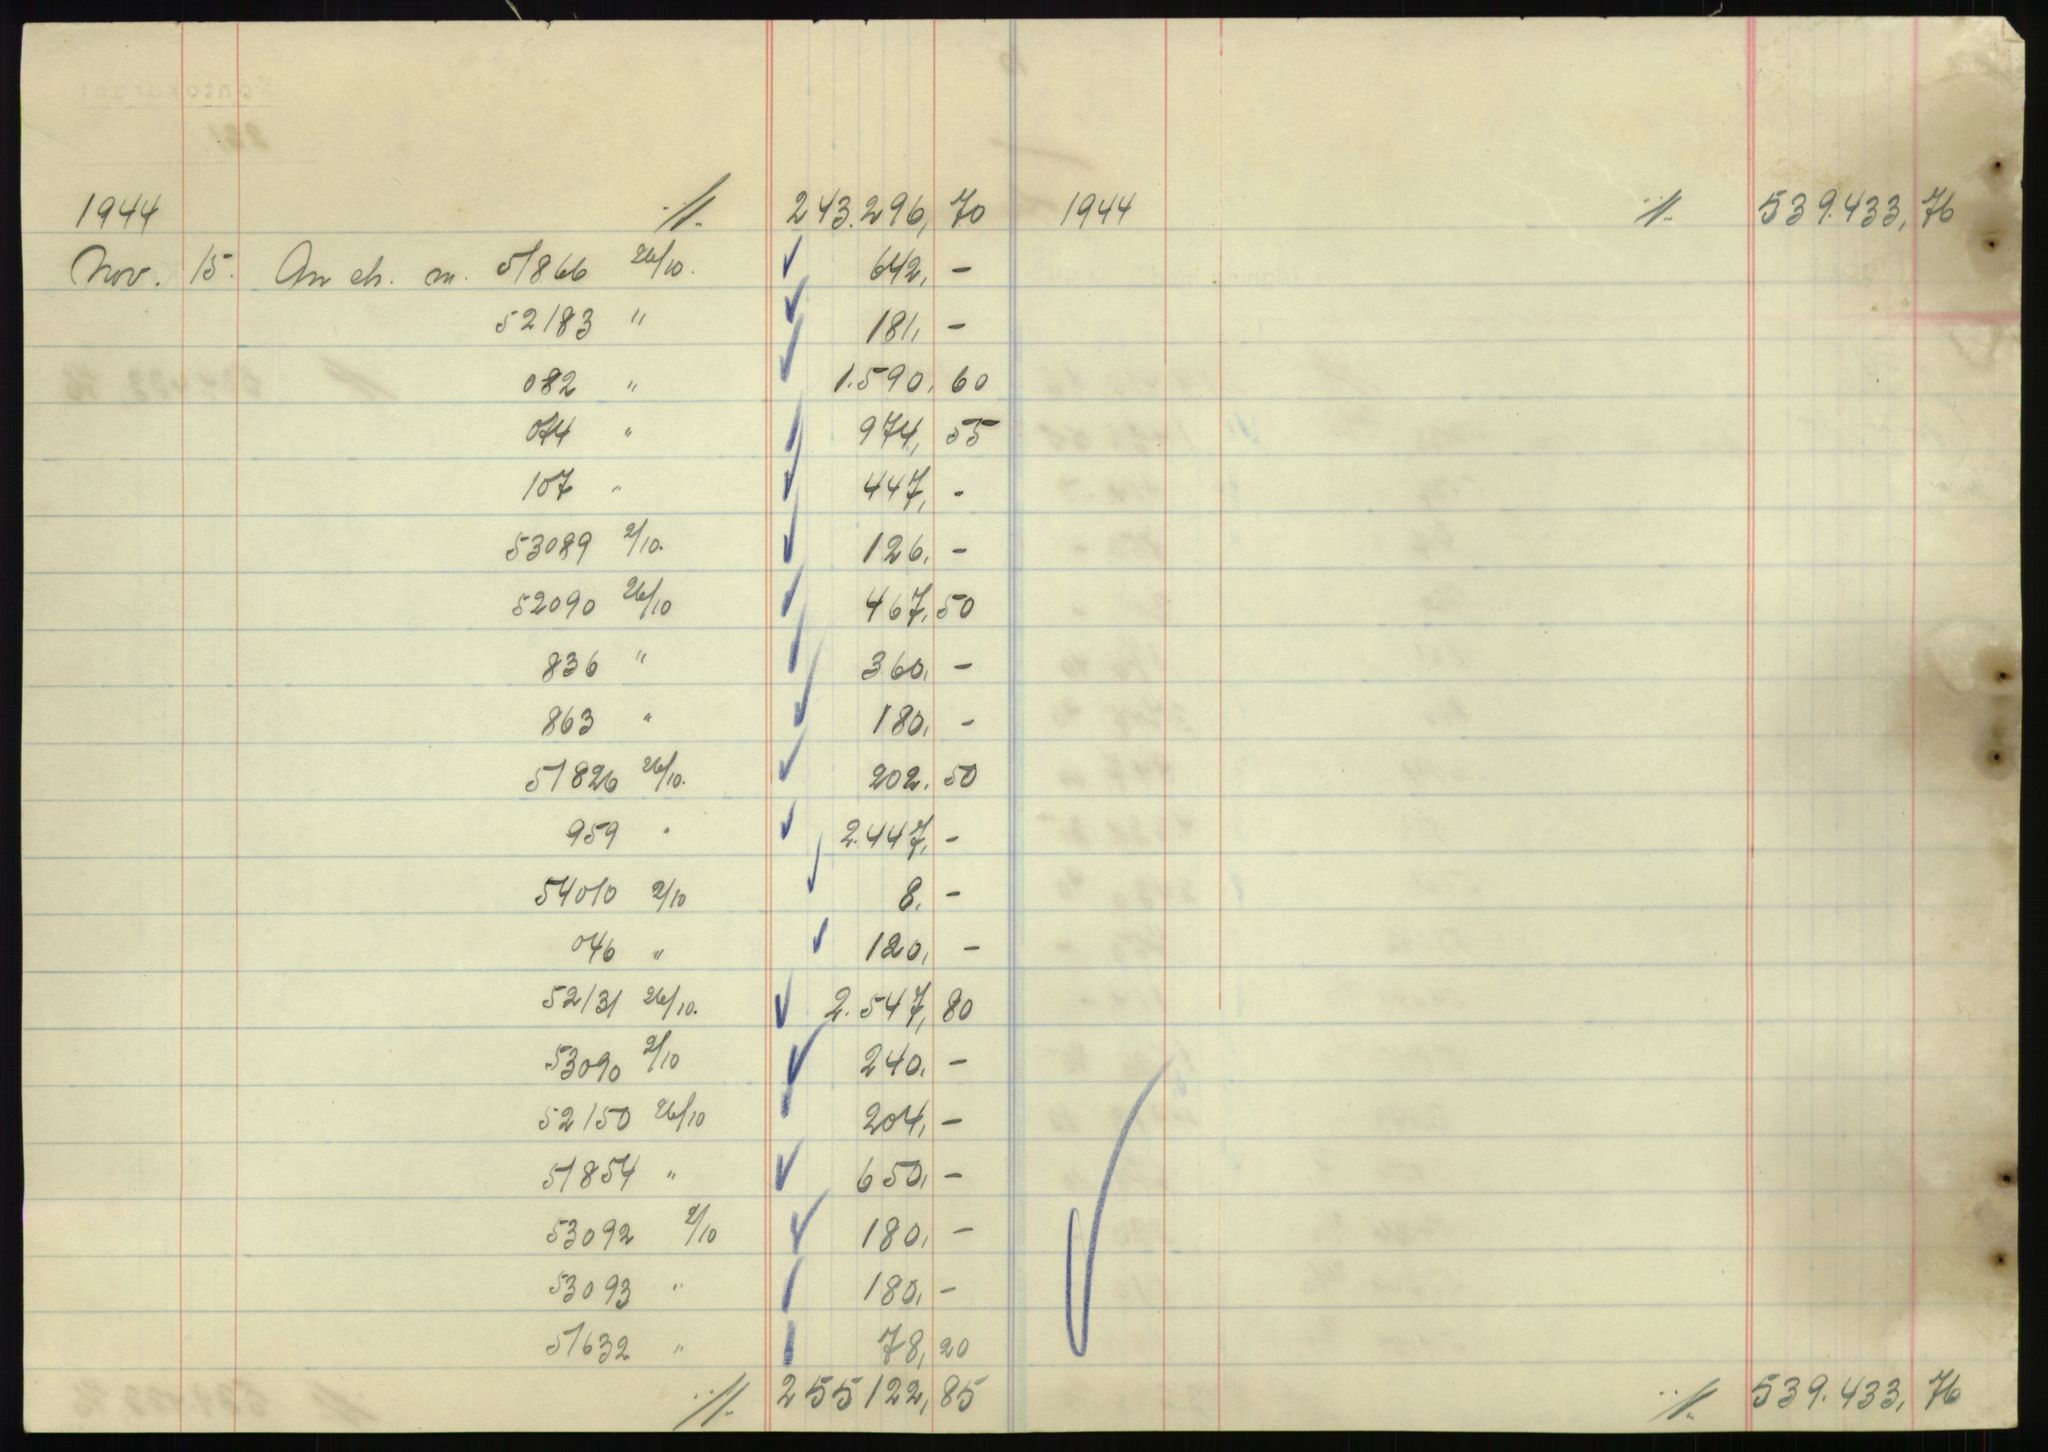 1944 ·/· 243.296,70 1944 ·/· 539.433,76
Nov. 15. An ch. m. 51866 26/10. 642,-
52183 " 181,-
082 " 1.590,60
074 " 974,55
107 " 447,-
53089 2/10. 126,-
52090 26/10 467,50
836 " 360,-
863 " 180,-
51826 26/10. 202.50
959 " 2.447,-
54010 2/10 8.-
046 " 120,-
52131 26/10. 2.547,80
53090 2/10 240,-
52150 26/10 204,-
51854 " 650,-
53092 2/10 180,-
53093 " 180,-
51632 " 78,20
·/· 255122,85 ·/· 539.433,76